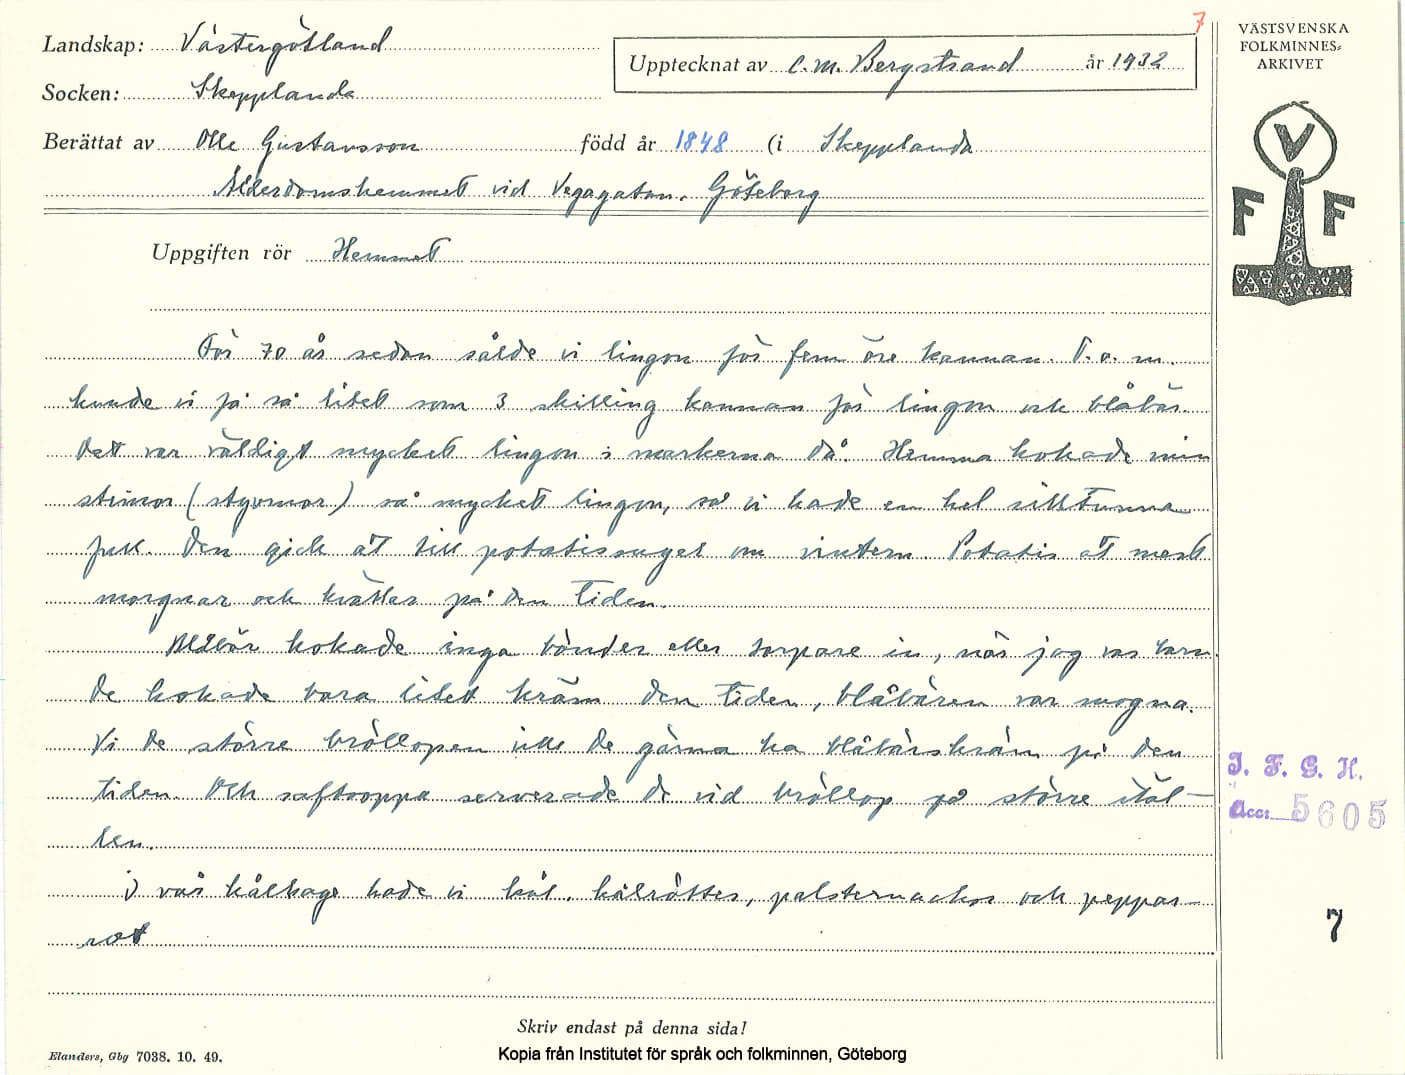 7
Landskap: Västergötland
Upptecknat av C.M. Bergstrand år 1932
Socken: Skepplanda
Berättat av Olle Gustavsson född år 1848 (i Skepplanda
Ålderdomshemmet vid Vegagatan, Göteborg
Uppgiften rör Hemmet
För 70 år sedan sålde vi lingon för fem öre kannan. T.o.m.
kunde vi få så litet som 3 skilling kannan för lingon och blåbär.
Det var väldigt mycket lingon i markerna då. Hemma kokade min
(styvmor) så mycket lingon, så vi hade en hel silltunna
full. Den gick åt till potatismaten om vintern. Potatis åt mest
morgnar och kvällar på den tiden.
Blåbär kokade inga bönder eller torpare in, när jag var barn.
De kokade bara litet kräm den tiden, blåbären var mogna.
Vi de större bröllopen ville de gärna ha blåbärskräm på den
tiden. Och saftsoppa serverade de vid bröllop på större stäl-
len.
I vår kålhage hade vi kål, kålrötter, palsternackor och peppar-
rot
Skriv endast på denna sida!
Elanders, Gbg 7038. 10. 49.
Kopia från Institutet för språk och folkminnen, Göteborg
VÄSTSVENSKA
FOLKMINNES-
ARKIVET
V
F F
I. F. G. H.
Acc: 5605
7